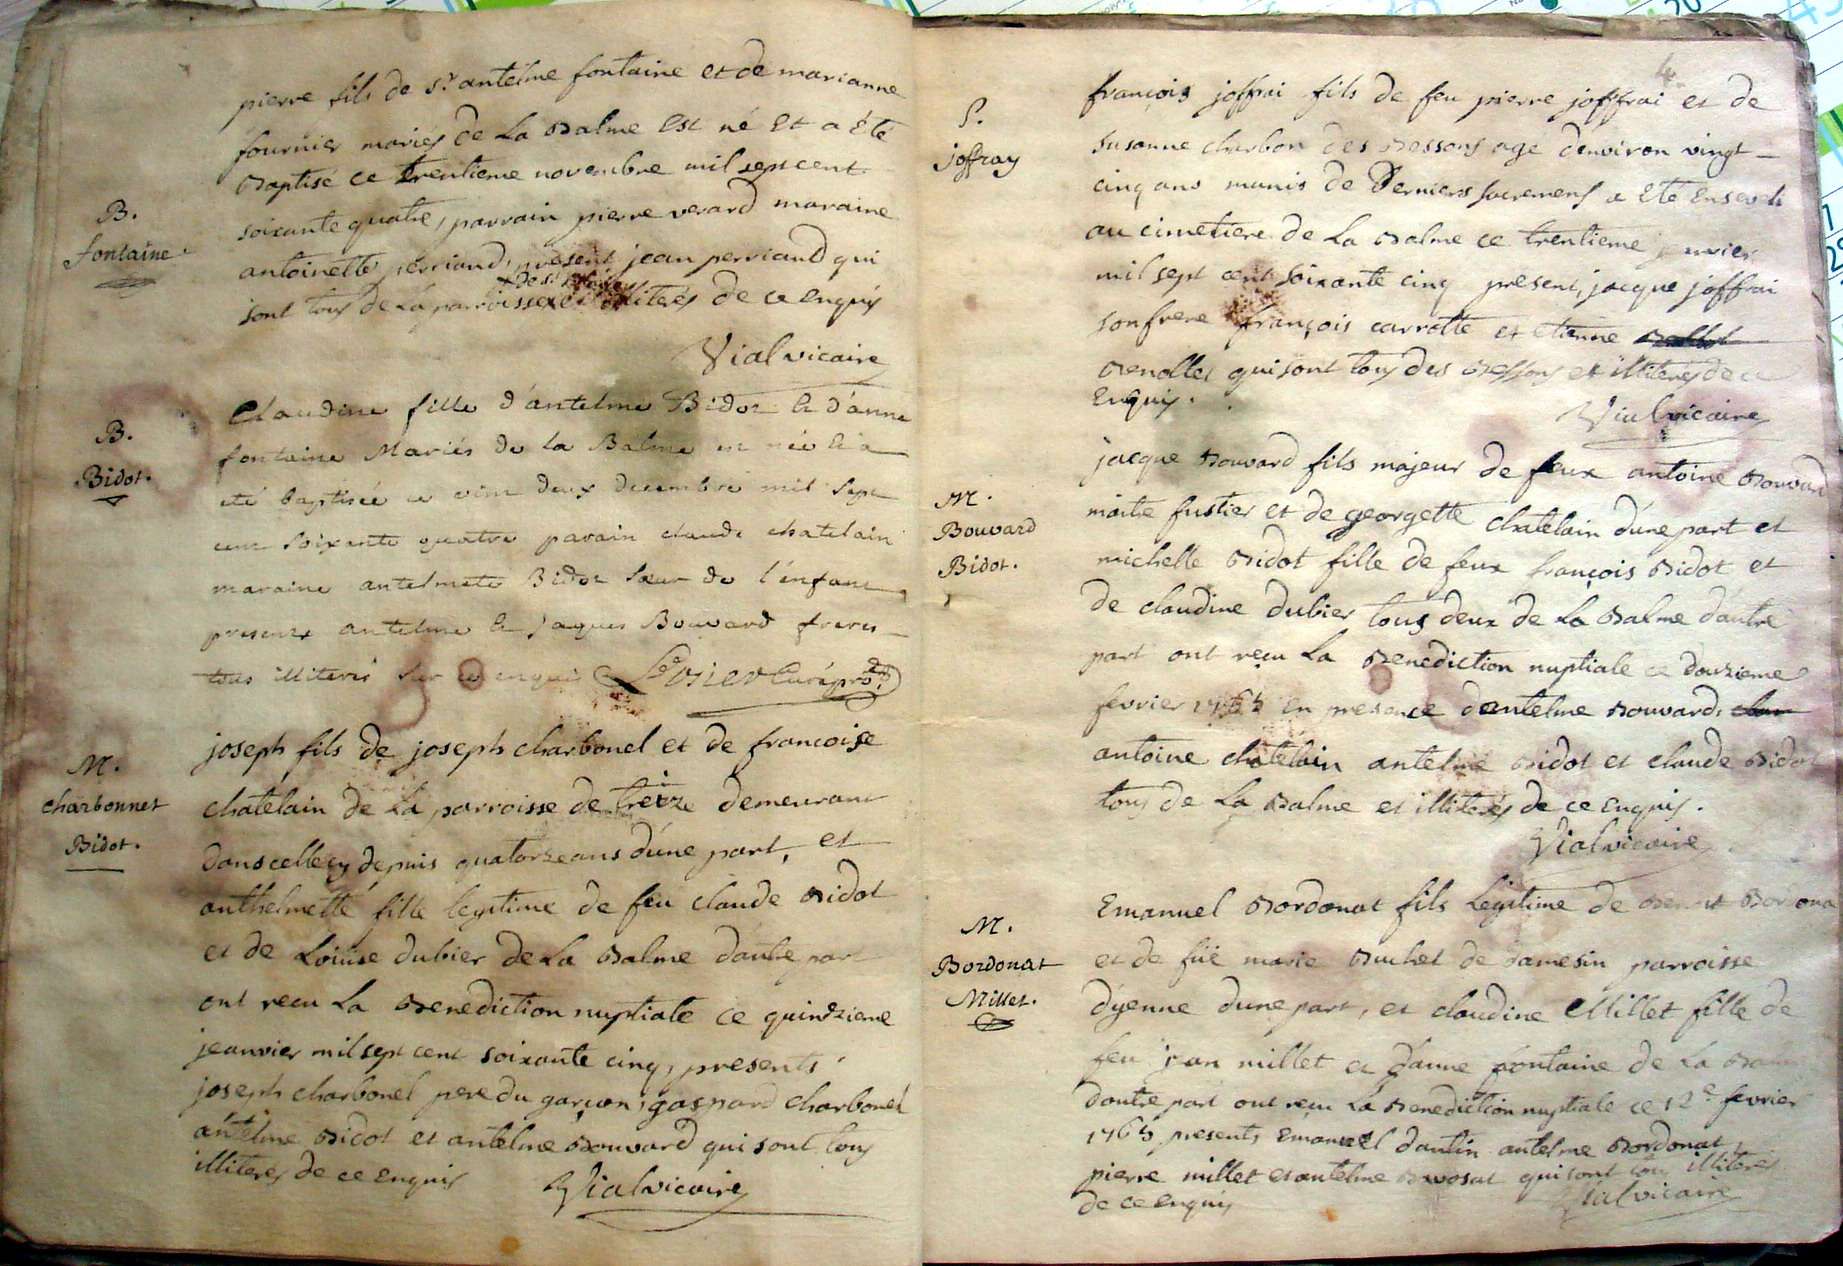 pierre fils de Sr antelme fontaine et de marianne
fournier mariés de La Balme Est né Et a Eté
Baptisé ce trentieme novembre mil sept cent
soixante quatre, parrain pierre verard maraine
B.
fontaine
antoinette perriand, present jean perriand qui
sont tous de La parroisse illiterés de ce Enquis
Vial vicaire
B.
Bidot.
Claudine fille d'antelme Bidot et d'anne
fontaine Mariés de la Balme est née et a
eté baptisée ce vint deux decembre mil sept
cent soixante quatre parain claude chatelain
maraine antelmete Bidot sœur de l'enfant,
presents antelme et jaques Bouvard freres
tous illiterés sur ce enquis
M.
charbonnet
Bidot.
joseph fils de joseph charbonel et de francoise
chatelain de La parroisse de treize demeurant
dans cellecy depuis quatorze ans d'une part, et
anthelmette fille legitime de feu claude Bidot
et de Louise dubier de La Balme d'autre part
ont recu La Benediction nuptiale ce quindzieme
jeanvier mil sept cent soixante cinq, presents
joseph charbonel pere du garçon, gaspard charbonel
antelme Bidot et antelme Bouvard qui sont tous
illiterés de ce Enquis Vial vicaire
S.
joffray
françois joffrai fils de feu pierre joffrai et de
susanne charbon des Bessons age d'environ vingt
cinq ans munis de Derniers sacremens a Eté Enseveli
au cimetiere de La Balme ce trentieme janvier
mil sept cent soixante cinq present, jacque joffrai
son frere françois carrotte et Etienne
qui sont tous des Bessons et illiterés de ce
Enquis.
Vial vicaire
M.
Bouvard
Bidot.
jacque Bouvard fils majeur de feux antoine Bouvard
maitre fustier et de georgette chatelain d'une part et
michelle Bidot fille de feux françois Bidot et
de claudine dubier tous deux de La Balme d'autre
part ont reçu La Benediction nuptiale ce douzieme
fevrier 1765 En presence d'antelme Bouvard,
antoine chatelain antelme Bidot et claude Bidot
tous de La Balme et illiterés de ce Enquis.
Vial vicaire
M.
Bordonat
Millet.
Emanuel Bordonat fils Legitime de Bordonat
et de füe marie Buchet de damesin parroisse
d'yenne d'une part, et claudine Millet fille de
feu jean millet et d'anne fontaine de La Balme
d'autre part ont reçu La Benediction nuptiale ce 12e fevrier
1765 presents Emanuel dantin antelme Bordonat,
pierre millet et antelme qui sont tous illiterés
de ce Enquis Vial vicaire